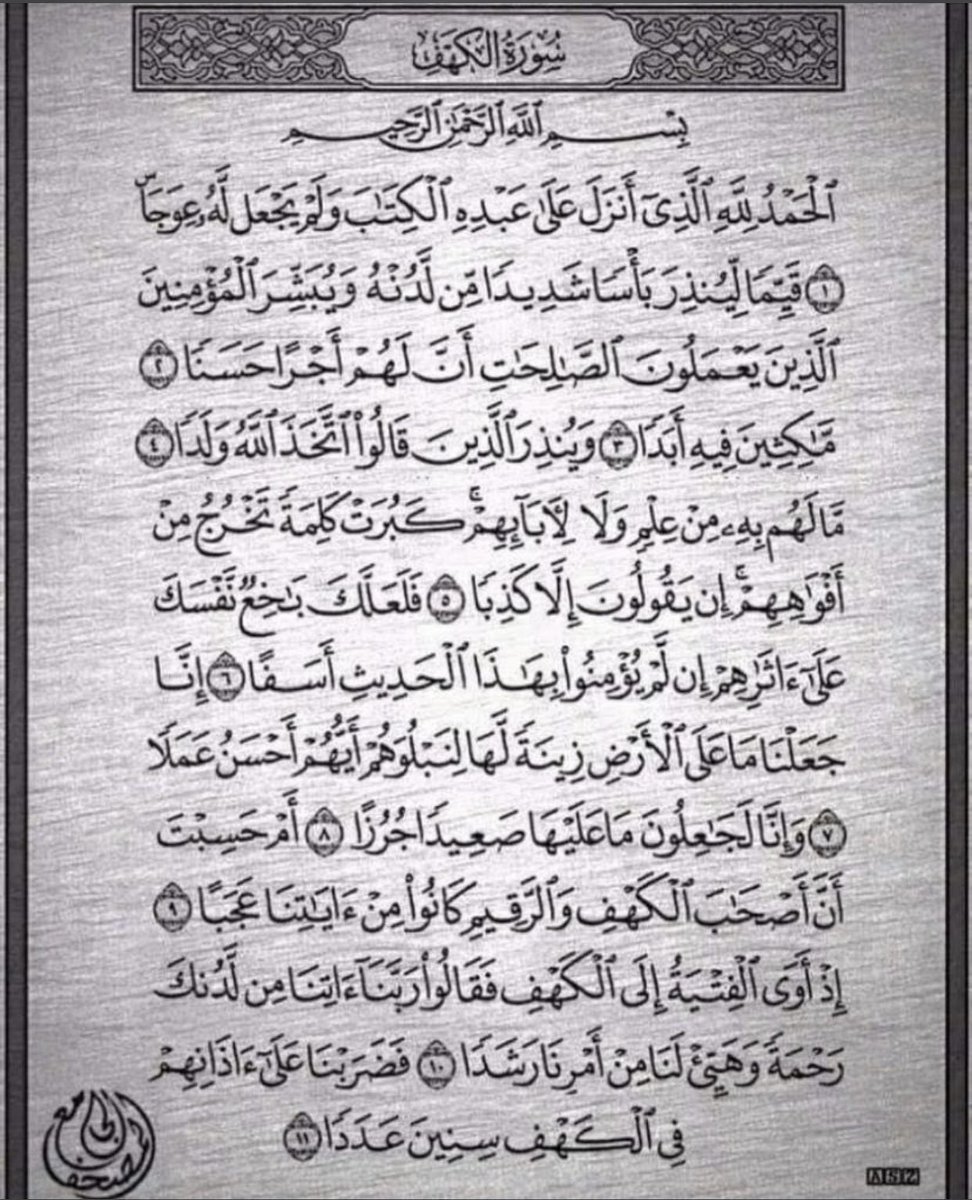 سُورَةُ الكَهْفِ
بِسْمِ ٱللَّهِ ٱلرَّحْمَٰنِ ٱلرَّحِيمِ
ٱلْحَمْدُ لِلَّهِ ٱلَّذِىٓ أَنزَلَ عَلَىٰ عَبْدِهِ ٱلْكِتَٰبَ وَلَمْ يَجْعَل لَّهُۥ عِوَجَاۜ
﴿١﴾ قَيِّمًا لِّيُنذِرَ بَأْسًا شَدِيدًا مِّن لَّدُنْهُ وَيُبَشِّرَ ٱلْمُؤْمِنِينَ
ٱلَّذِينَ يَعْمَلُونَ ٱلصَّٰلِحَٰتِ أَنَّ لَهُمْ أَجْرًا حَسَنًا ﴿٢﴾
مَّٰكِثِينَ فِيهِ أَبَدًا ﴿٣﴾ وَيُنذِرَ ٱلَّذِينَ قَالُوا۟ ٱتَّخَذَ ٱللَّهُ وَلَدًا ﴿٤﴾
مَّا لَهُم بِهِۦ مِنْ عِلْمٍ وَلَا لِءَابَآئِهِمْ ۚ كَبُرَتْ كَلِمَةً تَخْرُجُ مِنْ
أَفْوَٰهِهِمْ ۚ إِن يَقُولُونَ إِلَّا كَذِبًا ﴿٥﴾ فَلَعَلَّكَ بَٰخِعٌ نَّفْسَكَ
عَلَىٰٓ ءَاثَٰرِهِمْ إِن لَّمْ يُؤْمِنُوا۟ بِهَٰذَا ٱلْحَدِيثِ أَسَفًا ﴿٦﴾ إِنَّا
جَعَلْنَا مَا عَلَى ٱلْأَرْضِ زِينَةً لَّهَا لِنَبْلُوَهُمْ أَيُّهُمْ أَحْسَنُ عَمَلًا
﴿٧﴾ وَإِنَّا لَجَٰعِلُونَ مَا عَلَيْهَا صَعِيدًا جُرُزًا ﴿٨﴾ أَمْ حَسِبْتَ
أَنَّ أَصْحَٰبَ ٱلْكَهْفِ وَٱلرَّقِيمِ كَانُوا۟ مِنْ ءَايَٰتِنَا عَجَبًا ﴿٩﴾
إِذْ أَوَى ٱلْفِتْيَةُ إِلَى ٱلْكَهْفِ فَقَالُوا۟ رَبَّنَآ ءَاتِنَا مِن لَّدُنكَ
رَحْمَةً وَهَيِّئْ لَنَا مِنْ أَمْرِنَا رَشَدًا ﴿١٠﴾ فَضَرَبْنَا عَلَىٰٓ ءَاذَانِهِمْ
فِى ٱلْكَهْفِ سِنِينَ عَدَدًا ﴿١١﴾
ASZ